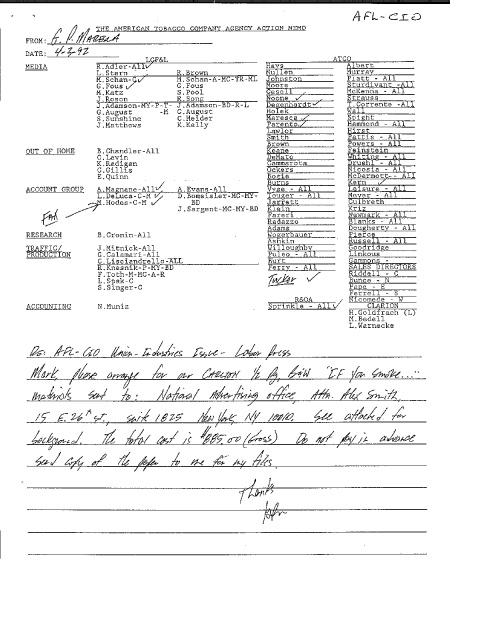 AFL-CIO
THE AMERICAN TOBACCO COMPANY AGENCY ACTION MEMO
FROM:
DATE: 4-2-92
LGF&L
ATCO
MEDIA
R.Adler-All
L.Stern
M.Schan-G
G.Fous
M.Katz
J.Rosen
J.Adamson-MY-P-T
G.August -M
S.Sunshine
J.Matthews
R.Brown
M.Schan-A-MC-YR-ML
G.Fous
S.Pool
R.Song
J.Adamson-BD-R-L
G.August
C.Heider
K.Kelly
OUT OF HOME
B.Chandler-All
C.Levin
K.Radigan
G.Gillis
E.Quinn
ACCOUNT GROUP
A.Magnane-All
L.DeLuca-C-M
M.Hodas-C-M
A.Evans-All
D.Bomeisler-MG-MY-
BD
J.Sargent-MC-MY-BD
FAX
RESEARCH
B.Cronin-All
TRAFFIC/
PRODUCTION
J.Mitnick-All
G.Calamari-All
C.Lisciandrella-ALL
R.Krasnik-P-MY-BD
F.Toth-M-MG-A-R
L.Spak-C
S.Singer-C
ACCOUNTING
N.Muniz
Hays
Mullen
Johnston
Moore
Gesell
Moore
Degenhardt
Holek
Maresca
Parente
Lawlor
Smith
Brown
Keane
DeMato
Cammarota
Ockers
Burns
Jarrett
Klein
Radazzo
Adams
Wogerbauer
Ashkin
Willoughby
Puleo - All
Burt
Perry - All
Tucker
RSOA
Sprinkle - All
Albert
Murray
Platt - All
Sturdivant -All
McKenna - All
Strauss
Wall
Spight
Hammond - All
Hirst
Pattis - All
Powers - All
Feinstein
Whiting - All
Druehl - All
Nicosia - All
McDermott - All
Kern
Leisure - All
Mayar - All
Culbreth
Kriz
Newmark - All
Blanks - All
Dougherty - All
Pierce
Russell - All
Goodridge
Linkous
Gammons -
SALES DIRECTORS
Riddell - C
Bunce - N
Pape - E
Ferrell - S
Nicomede - W
CLARION
H.Goldfrach (L)
M.Bedell
L.Warnecke
Re: AFL-CIO Union-Industries Issue - Labor Press
Mark, please arrange for our CARLTON ½ Pg. B&W "IF You Smoke..."
materials sent to: National Advertising office, Attn. Alex Smith,
15 E. 26th st., suite 1825 New York, NY 10010. See attached for
background. The total cost is $885.00 (Gross) Do not pay in advance
Send copy of the paper to me for my files.
Thanks